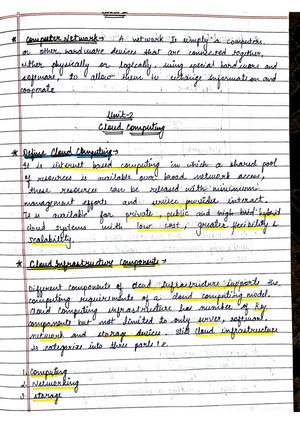 * Computer Network → A network is simply a computers
or other hardware devices that are connected together,
either physically or logically, using special hardware and
software, to allow them to exchange information and
cooperate
Unit-2
Cloud Computing
* Define Cloud Computing →
It is internet based computing in which a shared pool
of resources is available over broad network access,
these resources can be released with minimum
management efforts and service provider interact.
It is available for private, public and hybrid
cloud systems with low cost, greater flexibility &
scalability.
* Cloud Infrastructure Components →
Different components of cloud infrastructure supports the
computing requirements of a cloud computing model.
Cloud computing infrastructure has number of key
components but not limited to only server, software,
network and storage devices. Still cloud infrastructure
is categorize into three parts i.e.
1. Computing
2. Networking
3. storage